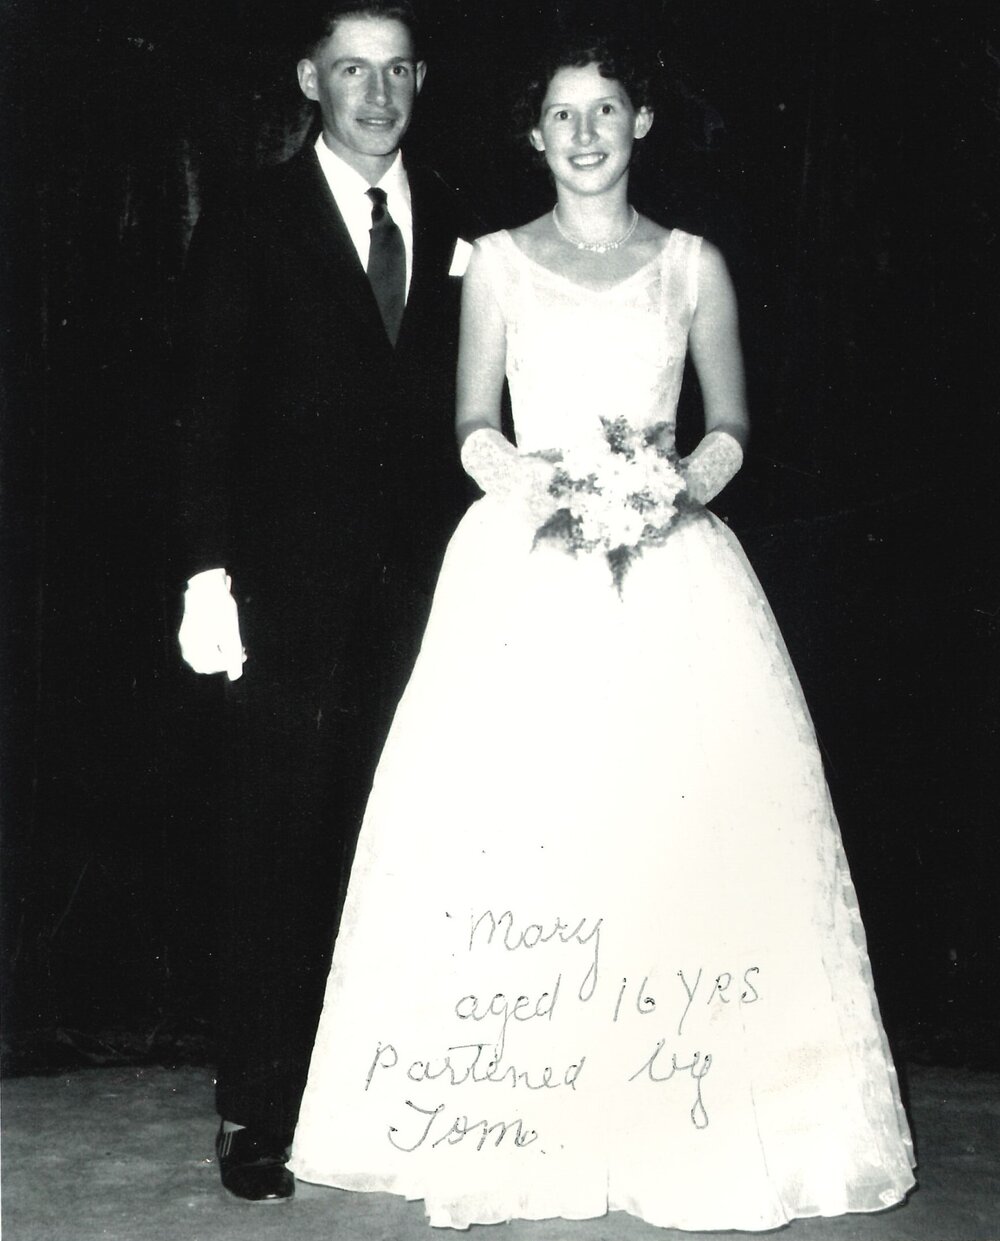 Mary
aged 16 YRS
Partened by
Tom.